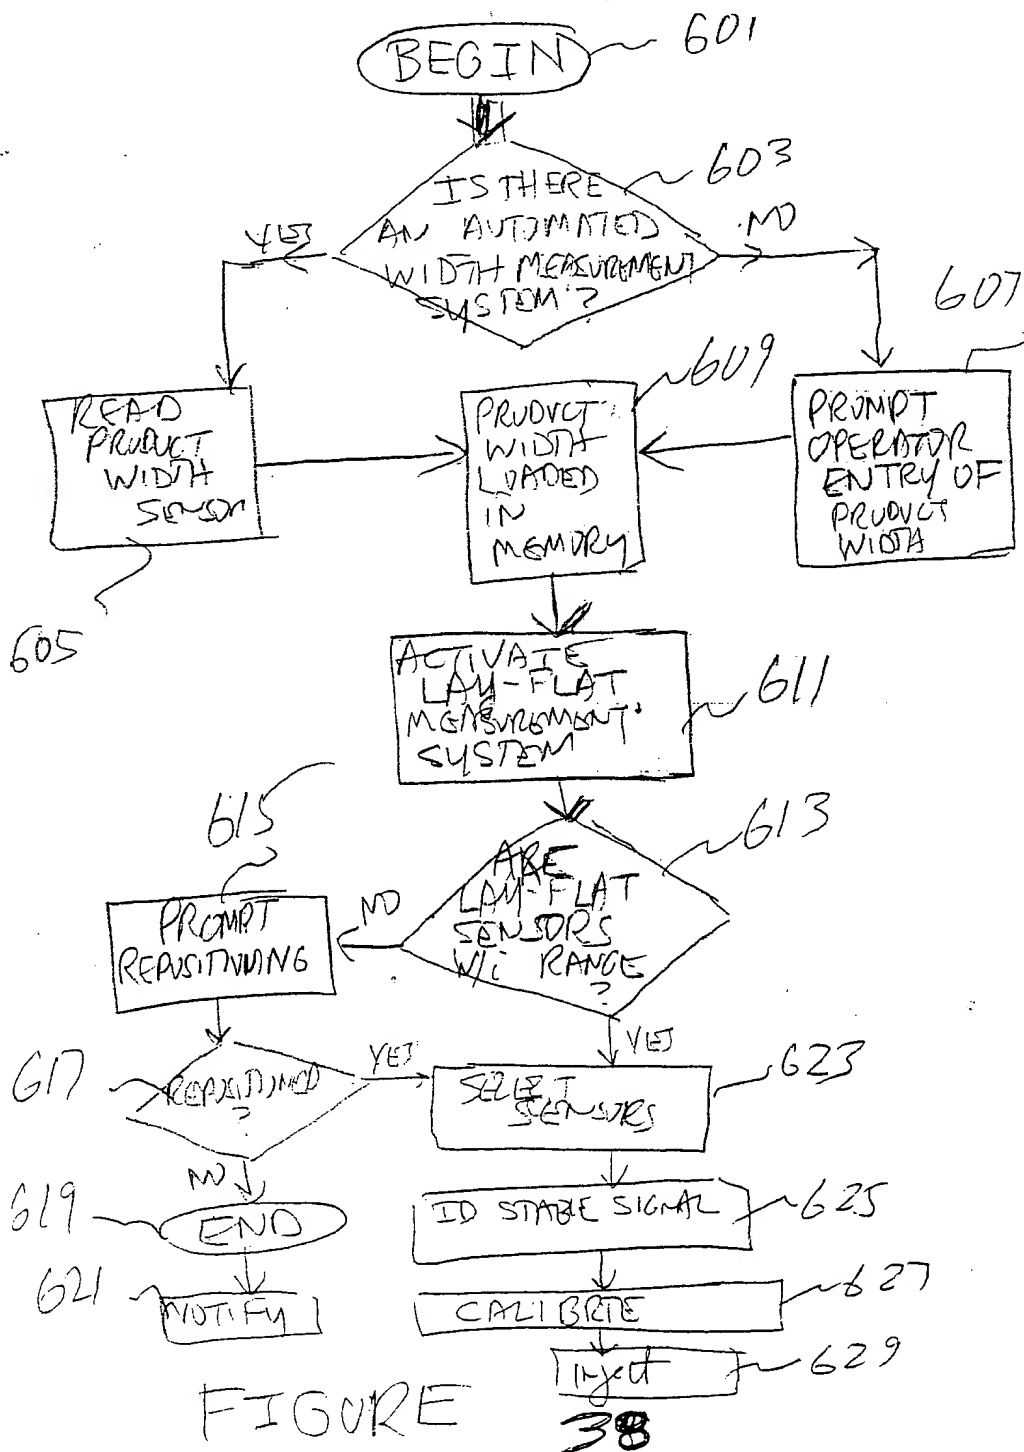 601
BEGIN
603
IS THERE
AN AUTOMATED
WIDTH MEASUREMENT
SYSTEM?
YES
NO
607
609
READ
PRODUCT
WIDTH
SENSOR
PRODUCT
WIDTH
LOADED
IN
MEMORY
PROMPT
OPERATOR
ENTRY OF
PRODUCT
WIDTH
605
ACTIVATE
LAY-FLAT
MEASUREMENT
SYSTEM
611
615
613
ARE
LAY-FLAT
SENSORS
W/i RANGE
?
NO
PROMPT
REPOSITIONING
YES
617
REPOSITIONED
?
YES
SELECT
SENSORS
623
NO
619
END
ID STABLE SIGNAL
625
621
NOTIFY
CALIBRTE
627
Inject
629
FIGURE 38